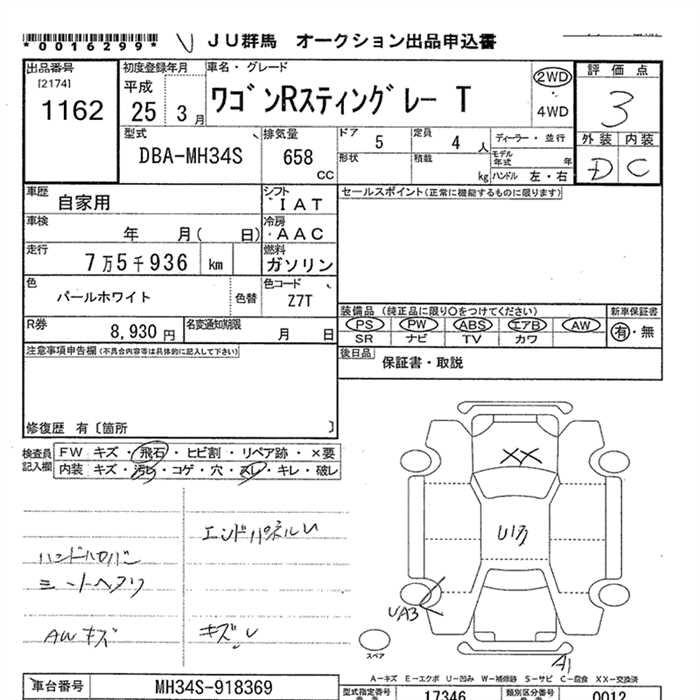 *0016299*
JU群馬 オークション出品申込書
出品番号
[2174]
1162
初度登録年月
平成
25年 3月
車名・グレード
ワゴンRスティングレー T
2WD
4WD
評価点
3
外装 内装
D C
型式
DBA-MH34S
排気量
658
CC
ドア
5
定員
4 人
ディーラー・並行
形状
積載
kg
モデル年式 年
ハンドル 左・右
車歴
自家用
シフト
IAT
セールスポイント(正常に機能するものに限ります)
車検
年 月( 日)
冷房
AAC
走行
7万5千936 km
燃料
ガソリン
色
パールホワイト
色替
色コード
Z7T
装備品 (純正品に限り○をつけてください)
新車保証書
PS PW ABS エアB AW
有・無
SR ナビ TV カワ
R券
8,930 円
名変通知期限
月 日
後日品
保証書・取説
注意事項申告欄(不具合内容等は具体的に記入して下さい)
修復歴 有〔箇所 〕
検査員記入欄
FW キズ・飛石・ヒビ割・リペア跡・×要
内装 キズ・汚レ・コゲ・穴・スレ・キレ・破レ
XX
エンドパネルU
U1万
シートヘタリ
UA3
AWキズ
キズU
スペア
A1
A-キズ E-エクボ U-凹み W-補修跡 S-サビ C-腐食 XX-交換済
車台番号
MH34S-918369
型式指定番号
17346
類別区分番号
0012